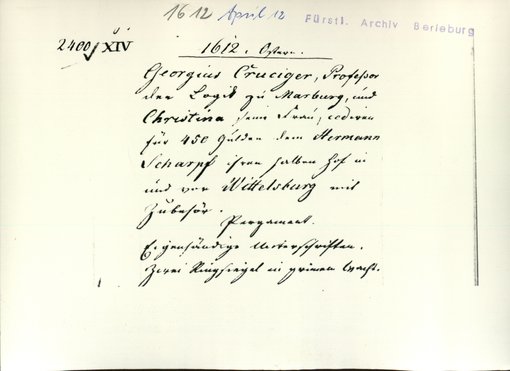 1612 April 12
Fürstl. Archiv Berleburg
2400 / XIV
1612. Ostern.
Georgius Cruciger, Professor
der Logik zu Marburg, und
Christina, seine Frau, cediren
für 450 Gulden dem Hermann
Scharpf ihren halben Hof in
und vor Wittelsburg mit
Zubehör.
Pergament.
Eigenhändige Unterschriften.
Zwei Ringsiegel in